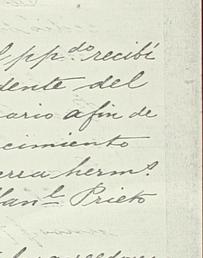 l pp.do recibí
dente del
ario afin de
cimiento
erra herms.
Man.l Prieto